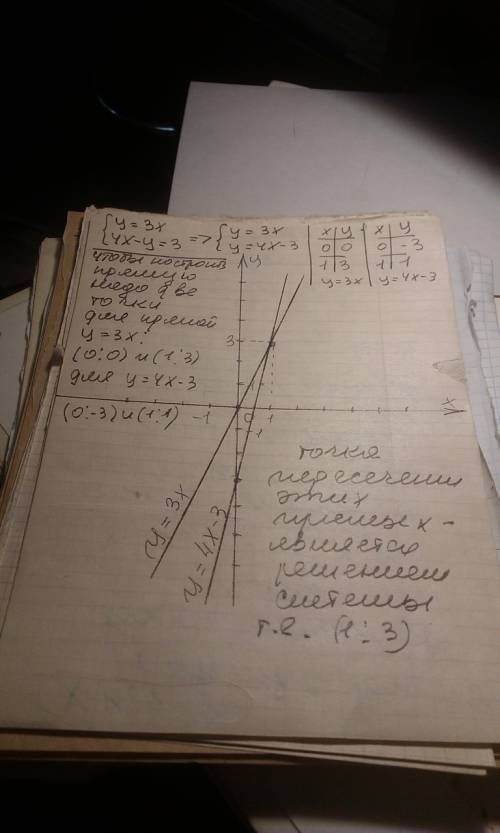 {y=3x
{4x-y=3 => {y=3x
{y=4x-3
x|y
0|0
1|3
y=3x
x|y
0|-3
1|1
y=4x-3
чтобы построив
прямую
надо две
точки
для прямой
y=3x:
(0:0) и (1:3)
для y=4x-3
(0:-3) и (1:1)
y
3
-1
0
1
1
x
y=3x
y=4x-3
точка
пересечения
этих
прямых -
является
решением
системы
т.е. (1:3)